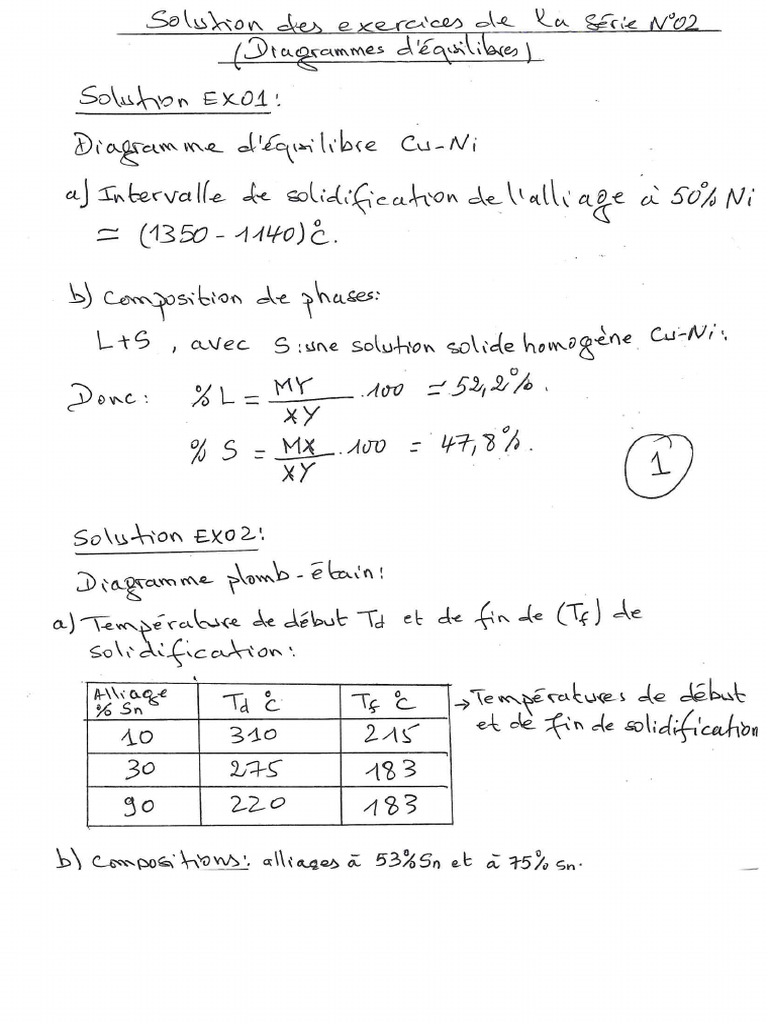 Solution des exercices de la Série N°02
(Diagrammes d'équilibres)
Solution EX01:
Diagramme d'équilibre Cu-Ni
a) Intervalle de solidification de l'alliage à 50% Ni
= (1350 - 1140)°C.
b) Composition de phases:
L+S , avec S: une solution solide homogène Cu-Ni:
Donc: % L = MY/XY . 100 = 52,2%.
% S = MX/XY . 100 = 47,8%.
1
Solution EX02:
Diagramme plomb-étain:
a) Température de début Td et de fin de (Tf) de
solidification:
Alliage % Sn Td °C Tf °C
10 310 215
30 275 183
90 220 183
→ Températures de début
et de fin de solidification
b) Compositions: alliages à 53% Sn et à 75% Sn.